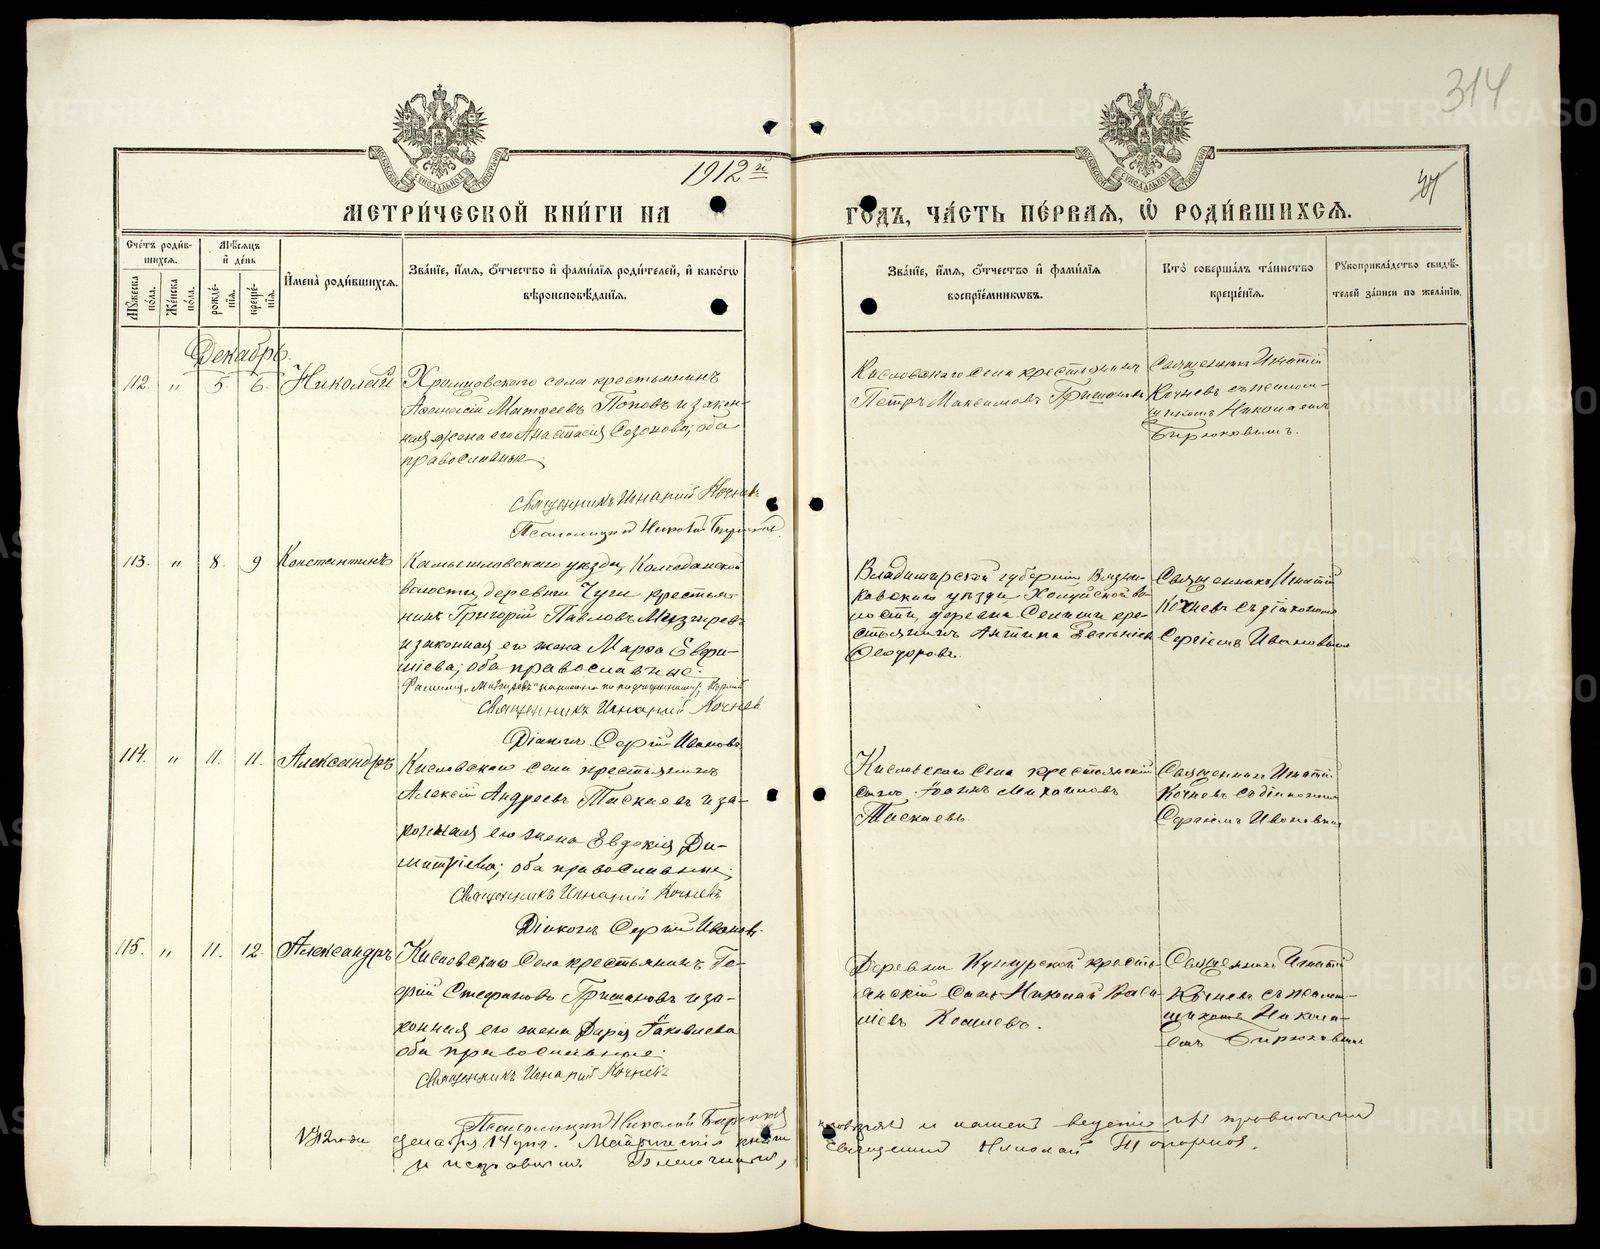 314
1912 й
МЕТРИ́ЧЕСКОЙ КНИ́ГИ НА ГОДЪ, ЧА́СТЬ ПЕ́РВАЯ, Ѡ РОДИ́ВШИХСЯ.
Сче́тъ роди́в-
шихся.
Му́жеска по́ла.
Же́нска по́ла.
Мѣ́сяцъ
и де́нь
рожде́-
нія.
креще́-
нія.
Имена̀ роди́вшихся.
Зва́ніе, и́мя, о́тчество и фами́лія роди́телей, и како́гѡ
вѣроисповѣ́данія.
Зва́ніе, и́мя, о́тчество и фами́лія
воспріе́мникѡвъ.
Кто̀ соверша́лъ та́инство
креще́нія.
Рукоприкла́дство свидѣ́-
телей за́писи по жела́нію.
Декабрь.
112. " 5 6. Николай
Хромцовского села крестьянинъ
Афанасій Матѳеевъ Поповъ и закон-
ная жена его Анастасія Созонова; оба
православные.
Священникъ Игнатій Кочневъ
Псаломщикъ Николай Бирюковъ
Кисловскаго села крестьянинъ
Петръ Максимовъ Гришановъ
Священникъ Игнатій
Кочневъ съ псалом-
щикомъ Николаемъ
Бирюковымъ.
113. " 8. 9 Константинъ
Камышловскаго уѣзда, Колчеданской
волости, деревни Чуги крестья-
нинъ Григорій Павловъ
и законная его жена Марѳа
оба православные.
Фамилія написана по
Священникъ Игнатій Кочневъ
Діаконъ Сергій Ивановъ
Владимирской губерніи Вязни-
ковскаго уѣзда Холуйской во-
лости, деревни кре-
стьянинъ Евгеніевъ
Ѳеодоровъ.
Священникъ Игнатій
Кочневъ съ діакономъ
Сергіемъ Ивановымъ
114. " 11. 11. Александръ
Кисловскаго села крестьянинъ
Алексій Андреевъ Таскаевъ и за-
конная его жена Евдокія Ди-
митріева; оба православные;
Священникъ Игнатій Кочневъ
Діаконъ Сергій Ивановъ.
Кисловскаго села крестьянскій
сынъ Іоаннъ Михаиловъ
Таскаевъ.
Священникъ Игнатій
Кочневъ съ діакономъ
Сергіемъ Ивановымъ
115. " 11. 12. Александръ
Кисловскаго села крестьянинъ Ге-
оргій Стефановъ Гришановъ и за-
конная его жена Дарія Іаковлева
оба православные.
Священникъ Игнатій Кочневъ
Псаломщикъ Николай Бирюковъ
Деревни крестья-
янскій сынъ Николай Васи-
ліевъ Кошлевъ.
Священникъ Игнатій
Кочневъ съ псалом-
щикомъ Никола-
емъ Бирюковымъ
1912 года декабря 14 дня. Метрическія книги
и исправными. Благочинный,
священникъ Николай Топорковъ.
METRIKI.GASO-URAL.RU